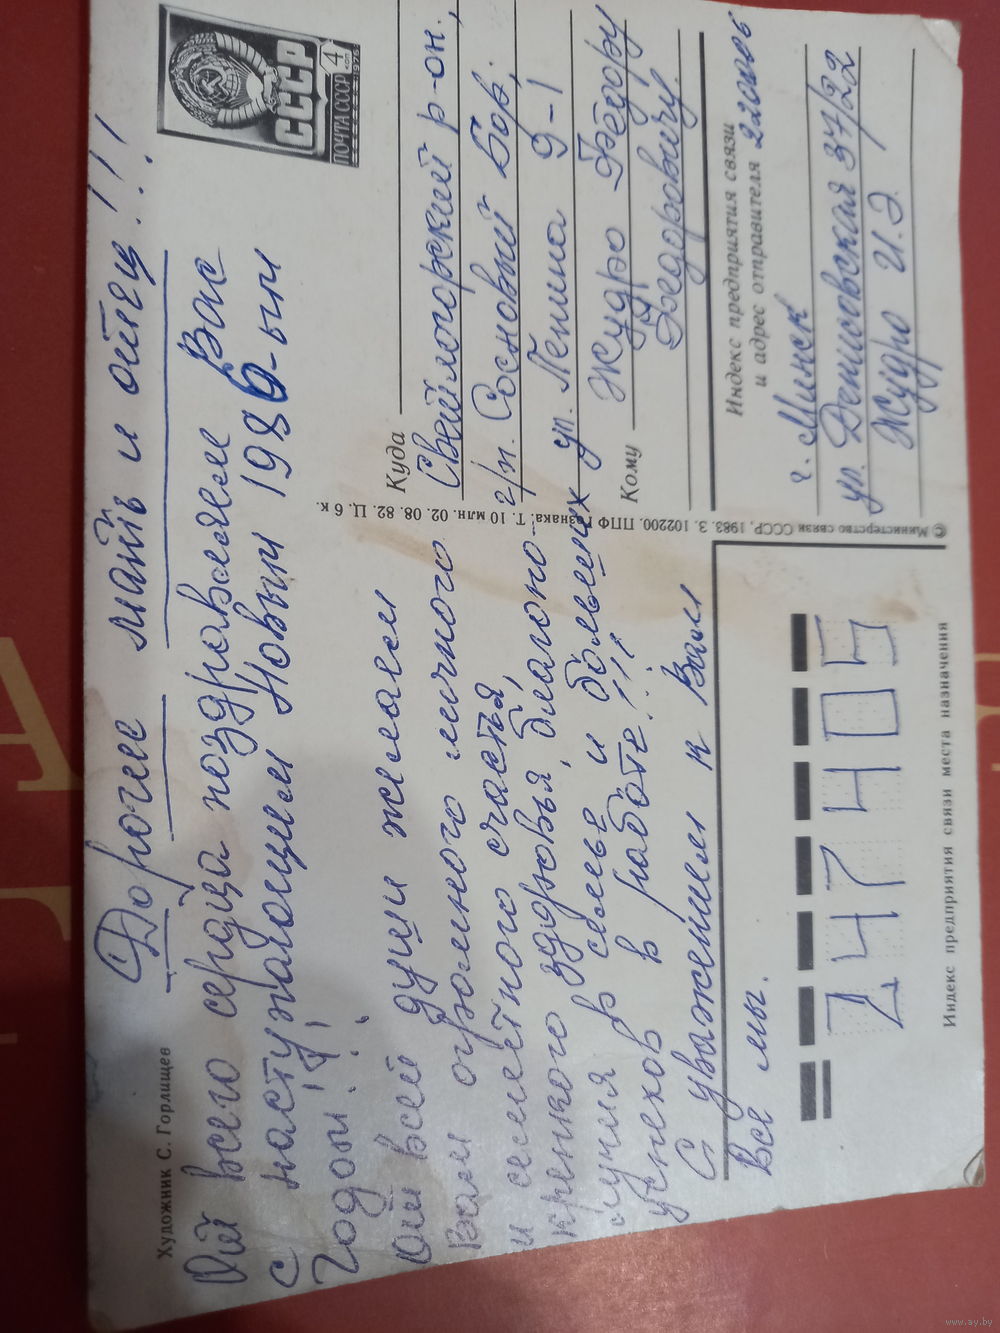 Художник С. Горлищев
Дорогие мать и отец!!!
От всего сердца поздравляем Вас
с наступающим Новым 1989-ым
Годом!!!
От всей души желаем
Вам огромного личного
и семейного счастья,
крепкого здоровья, благопо-
лучия в семье и больших
успехов в работе!!!
С уважением к Вам
Все мы.
СССР
ПОЧТА СССР
4 коп
Куда Светлогорский р-он.,
г/п. Сосновый Бор,
ул. Ленина 9-1
Кому Жудро Фёдору
Федоровичу
Индекс предприятия связи
и адрес отправителя
г. Минск
ул. Денисовская 37/22
Жудро И.Э.
© Министерство связи СССР, 1983. З. 102200. ППФ Гознака. Т. 10 млн. 02. 08. 82. Ц. 6 к.
247405
Индекс предприятия связи места назначения
www.ay.by